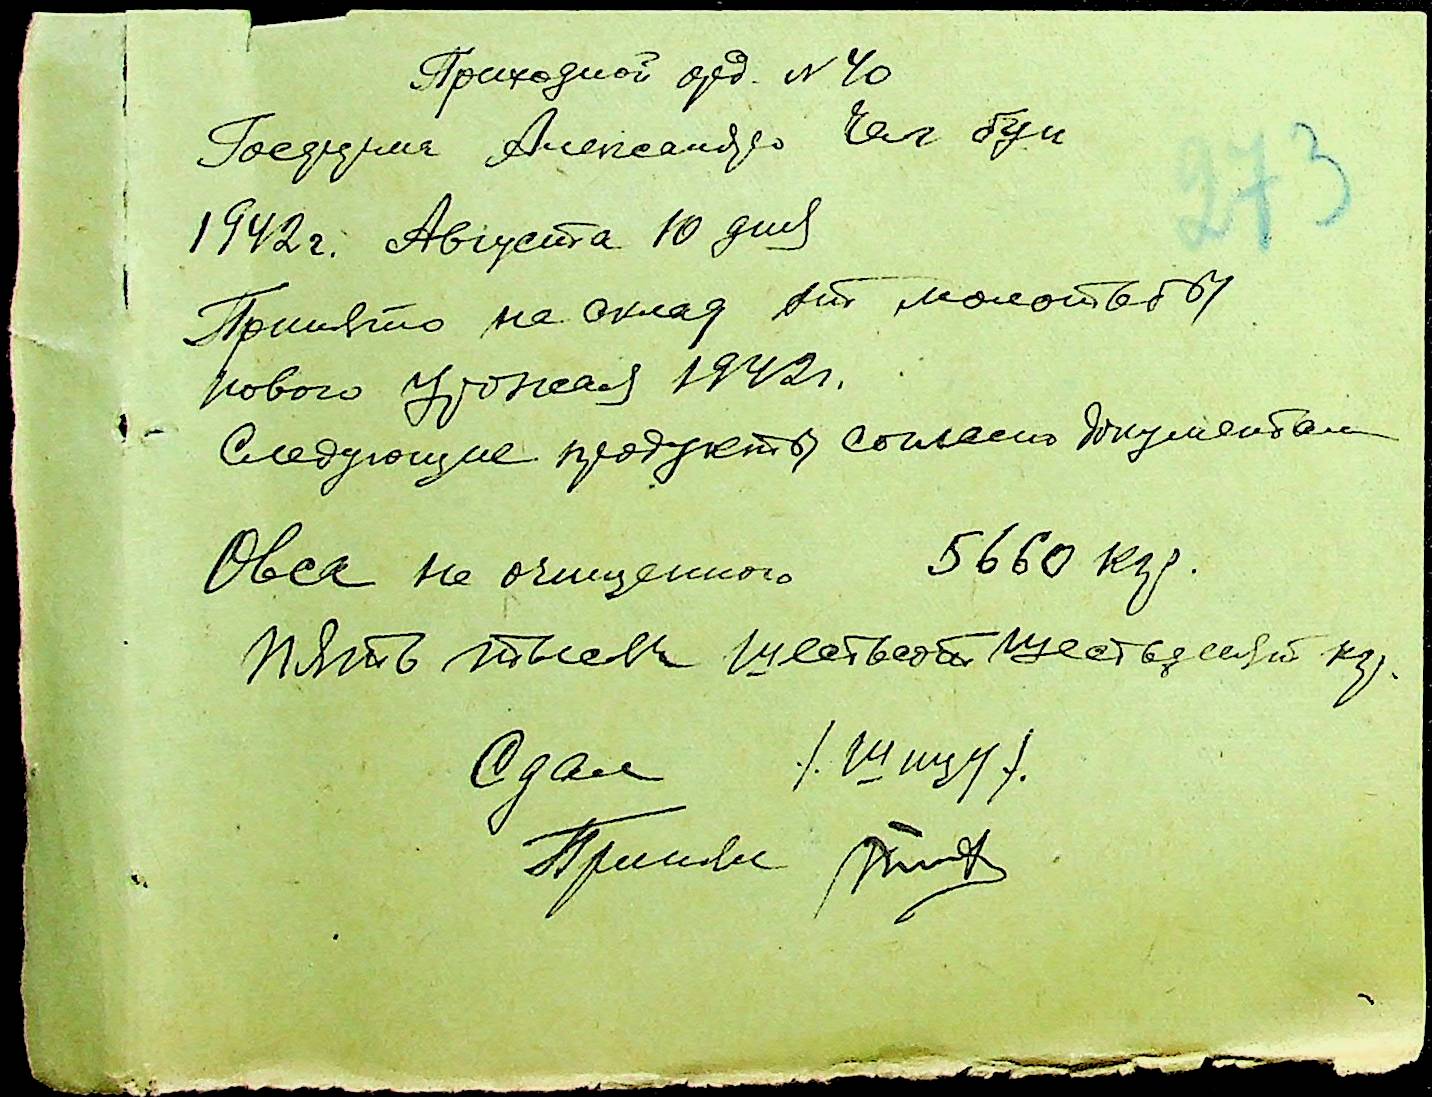 Приходной орд. N 40
273
Александро
1942 г. Августа 10 дня
Принято на склад от молотьбы
нового урожая 1942 г.
Следующие продукты согласно документам
Овса не очищенного 5660 кгр.
Пять тысяч шестьсот шестьдесят кгр.
Сдал
Принял